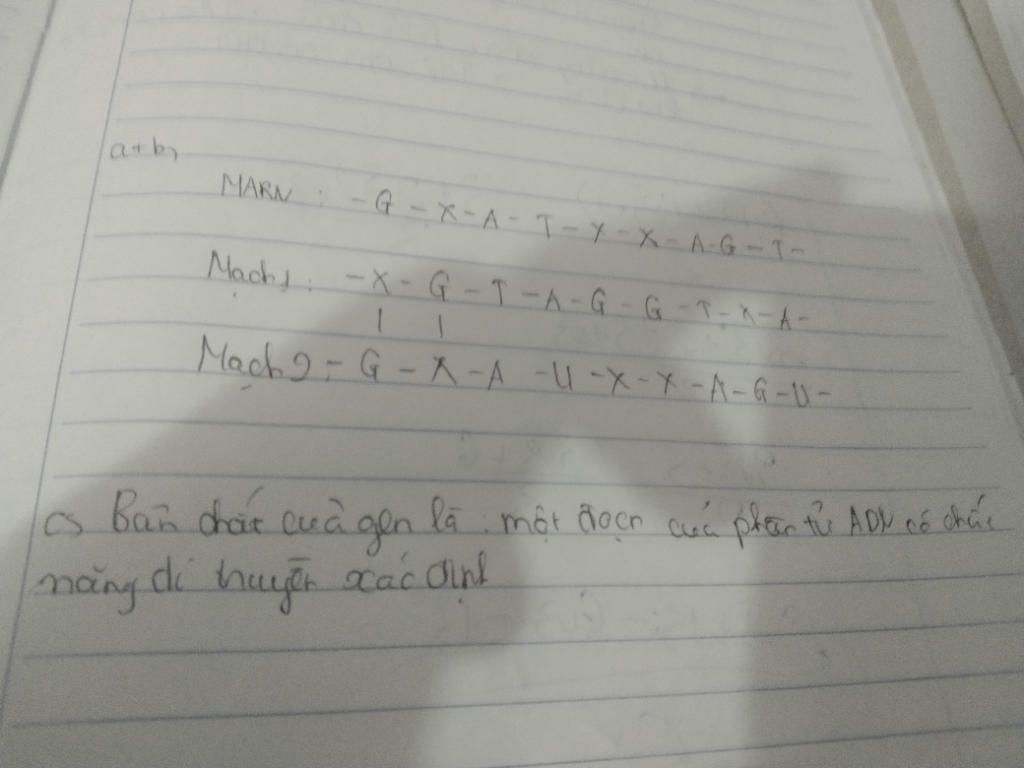 a+b,
MARN : - G - X - A - T - X - X - A - G - T -
Mạch 1 : - X - G - T - A - G - G - T - X - A -
Mạch 2 : - G - X - A - U - X - X - A - G - U -
c, Bản chất cuả gen là : một đoạn cuả phân tử ADN có chức
năng di truyền xác định